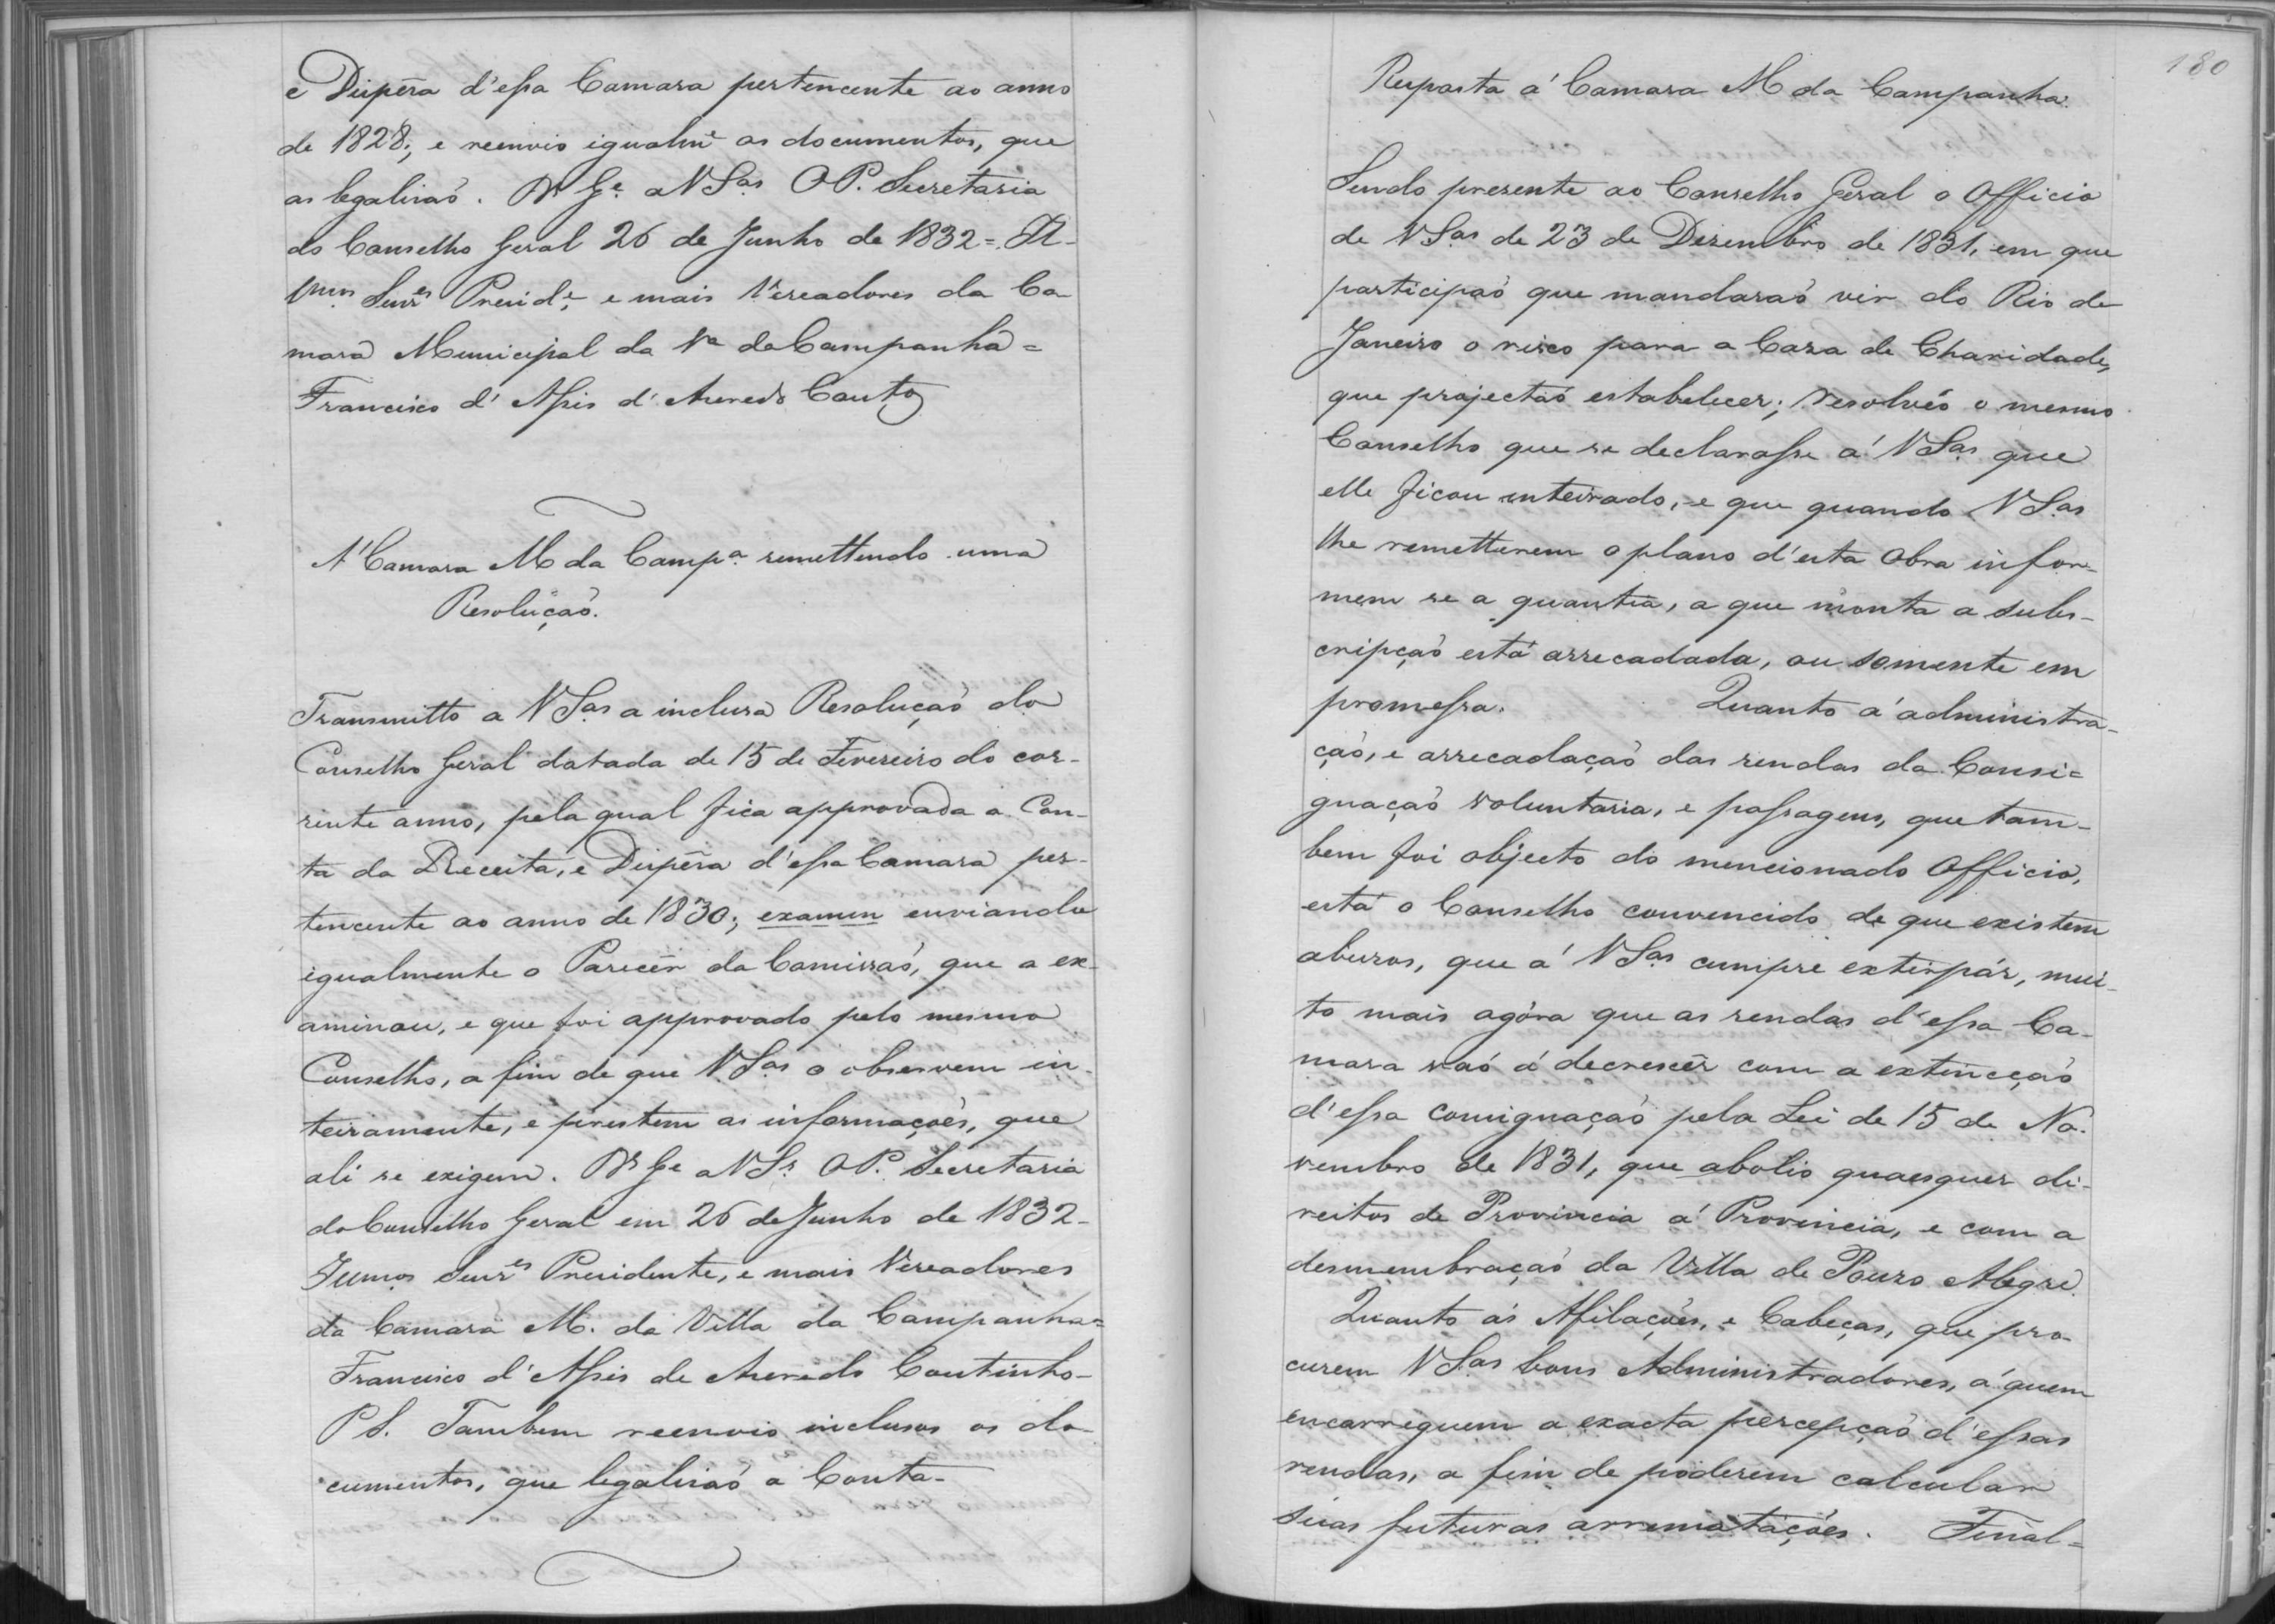 e Dispêza d'essa Camara pertencente ao anno
de 1828; e reenvio igualme os documentos, que
as legalizaõ. Ds Ge. a V Sas O P. Secretaria
do Conselho Geral 26 de Junho de 1832 = Il-
lmos Senres Preside, e mais Vereadores da Ca
mara Municipal da Va da Campanha =
Francisco d'Assis d'Azeredo Couto
A' Camara M da Campa. remettendo uma
Resoluçaõ.
Transmitto a V Sas a incluza Resoluçaõ do
Conselho Geral datada de 15 de Fevereiro do cor-
rente anno, pela qual fica approvada a Con-
ta da Receita, e Dispêza d'essa Camara per-
tencente ao anno de 1830; examen enviando
igualmente o Parecêr da Comissaõ, que a ex-
aminou, e que foi approvado pelo mesmo
Conselho, a fim de que V Sas o observem in-
teiramente, e prestem as informaçoẽs, que
ali se exigem. Ds Ge a V Sas O P. Secretaria
do Conselho Geral em 26 de Junho de 1832 -
Illmos Senres Presidente, e mais Vereadores
da Camara M. da Villa da Campanha =
Francisco d'Assis de Azeredo Coutinho -
P S. Tambem reenvio inclusos os do-
cumentos, que legalizaõ a Conta -
180
Resposta á Camara M da Campanha.
Sendo presente ao Conselho Geral o Officio
de V Sas de 23 de Dezembro de 1831, em que
participaõ que mandaraõ vir do Rio de
Janeiro o risco para a Caza de Charidade,
que projectaõ estabelecer; resolvêo o mesmo
Conselho que se declarasse á V Sas que
elle ficou inteirado, e que quando V Sas
lhe remetterem o plano d'esta Obra infor-
mem se a quantia, a que monta a subs-
cripçaõ está arrecadada, ou somente em
promessa. Quanto á administra-
çaõ, e arrecadaçaõ das rendas da Consi=
gnaçaõ voluntaria, e passagens, que tam-
bem foi objecto do mencionado Officio,
está o Conselho convencido de que existem
abuzos, que á V Sas cumpre extirpár, mui-
to mais agóra que as rendas d'essa Ca-
mara vaõ á decrescêr com a extincçaõ
d'essa consignaçaõ pela Lei de 15 de No-
vembro de 1831, que abolio quaesquer di-
reitos de Provincia á Provincia, e com a
desmembraçaõ da Villa de Pouzo Alegre.
Quanto ás Afilaçoẽs, e Cabeças, que pro-
curem V Sas bons Administradores, á quem
encarreguem a exacta percepçaõ d'essas
rendas, a fim de poderem calcular
suas futuras arremataçoẽs. Final=